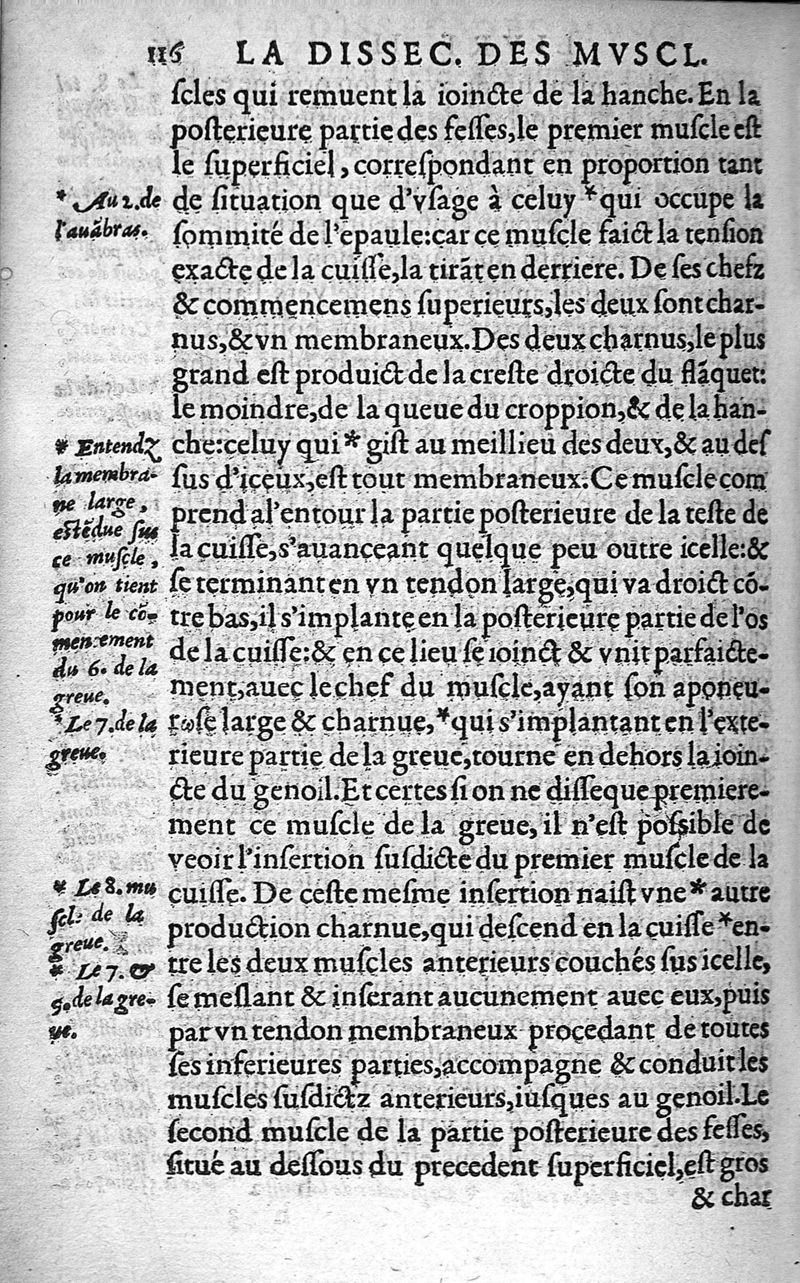 116 LA DISSEC. DES MVSCL.
ſcles qui remuent la ioincte de la hanche. En la
poſterieure partie des feſſes, le premier muſcle eſt
le ſuperficiel, correſpondant en proportion tant
de ſituation que d'vſage à celuy * qui occupe la
ſommité de l'epaule: car ce muſcle faict la tenſion
exacte de la cuiſſe, la tirāt en derriere. De ſes chefz
& commencemens ſuperieurs, les deux ſont char-
nus, & vn membraneux. Des deux charnus, le plus
grand eſt produict de la creſte droicte du flāquet:
le moindre, de la queue du croppion, & de la han-
che: celuy qui * giſt au meillieu des deux, & au deſ
ſus d'iceux, eſt tout membraneux. Ce muſcle com
prend al'entour la partie poſterieure de la teſte de
la cuiſſe, s'auanceant quelque peu outre icelle: &
ſe terminant en vn tendon large, qui va droict cō-
tre bas, il s'implante en la poſterieure partie de l'os
de la cuiſſe: & en ce lieu ſe ioinct & vnit parfaicte-
ment, auec le chef du muſcle, ayant ſon aponeu-
roſe large & charnue, * qui s'implantant en l'exte-
rieure partie de la greue, tourne en dehors la ioin-
cte du genoil. Et certes ſi on ne diſſeque premiere-
ment ce muſcle de la greue, il n'eſt poſſible de
veoir l'inſertion ſuſdicte du premier muſcle de la
cuiſſe. De ceſte meſme inſertion naiſt vne * autre
production charnue, qui deſcend en la cuiſſe * en-
tre les deux muſcles anterieurs couchés ſus icelle,
ſe meſlant & inſerant aucunement auec eux, puis
par vn tendon membraneux procedant de toutes
ſes inferieures parties, accompagne & conduit les
muſcles ſuſdictz anterieurs, iuſques au genoil. Le
ſecond muſcle de la partie poſterieure des feſſes,
ſitué au deſſous du precedent ſuperficiel, eſt gros
& char
* Au 2. de
l'auābras.
* Entendz
la membra-
ne large,
eſtēdue ſus
ce muſcle,
qu'on tient
pour le cō-
mencement
du 6. de la
greue.
* Le 7. de la
greue.
* Le 8. mu
ſcl: de la
greue.
* Le 7. &
9. de la gre-
ue.